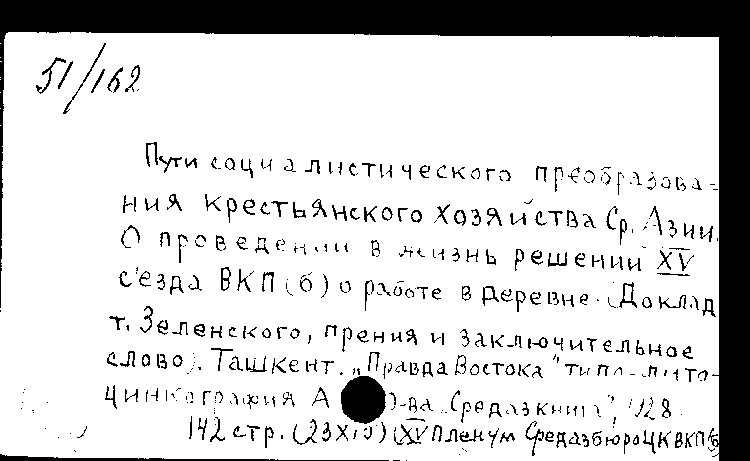 51/162
Пути социалистического преобразова=
ния крестьянского хозяйства Ср. Азии.
О проведении в жизнь решений XV
с'езда ВКП(б) о работе в деревне. (Доклад
т. Зеленского, прения и заключительное
слово). Ташкент. „Правда Востока" типо-лито-
цинкография А О-ва „Средазкнига", 1928.
142 стр. (23х15) (XV Пленум Средазбюро ЦК ВКП(б)